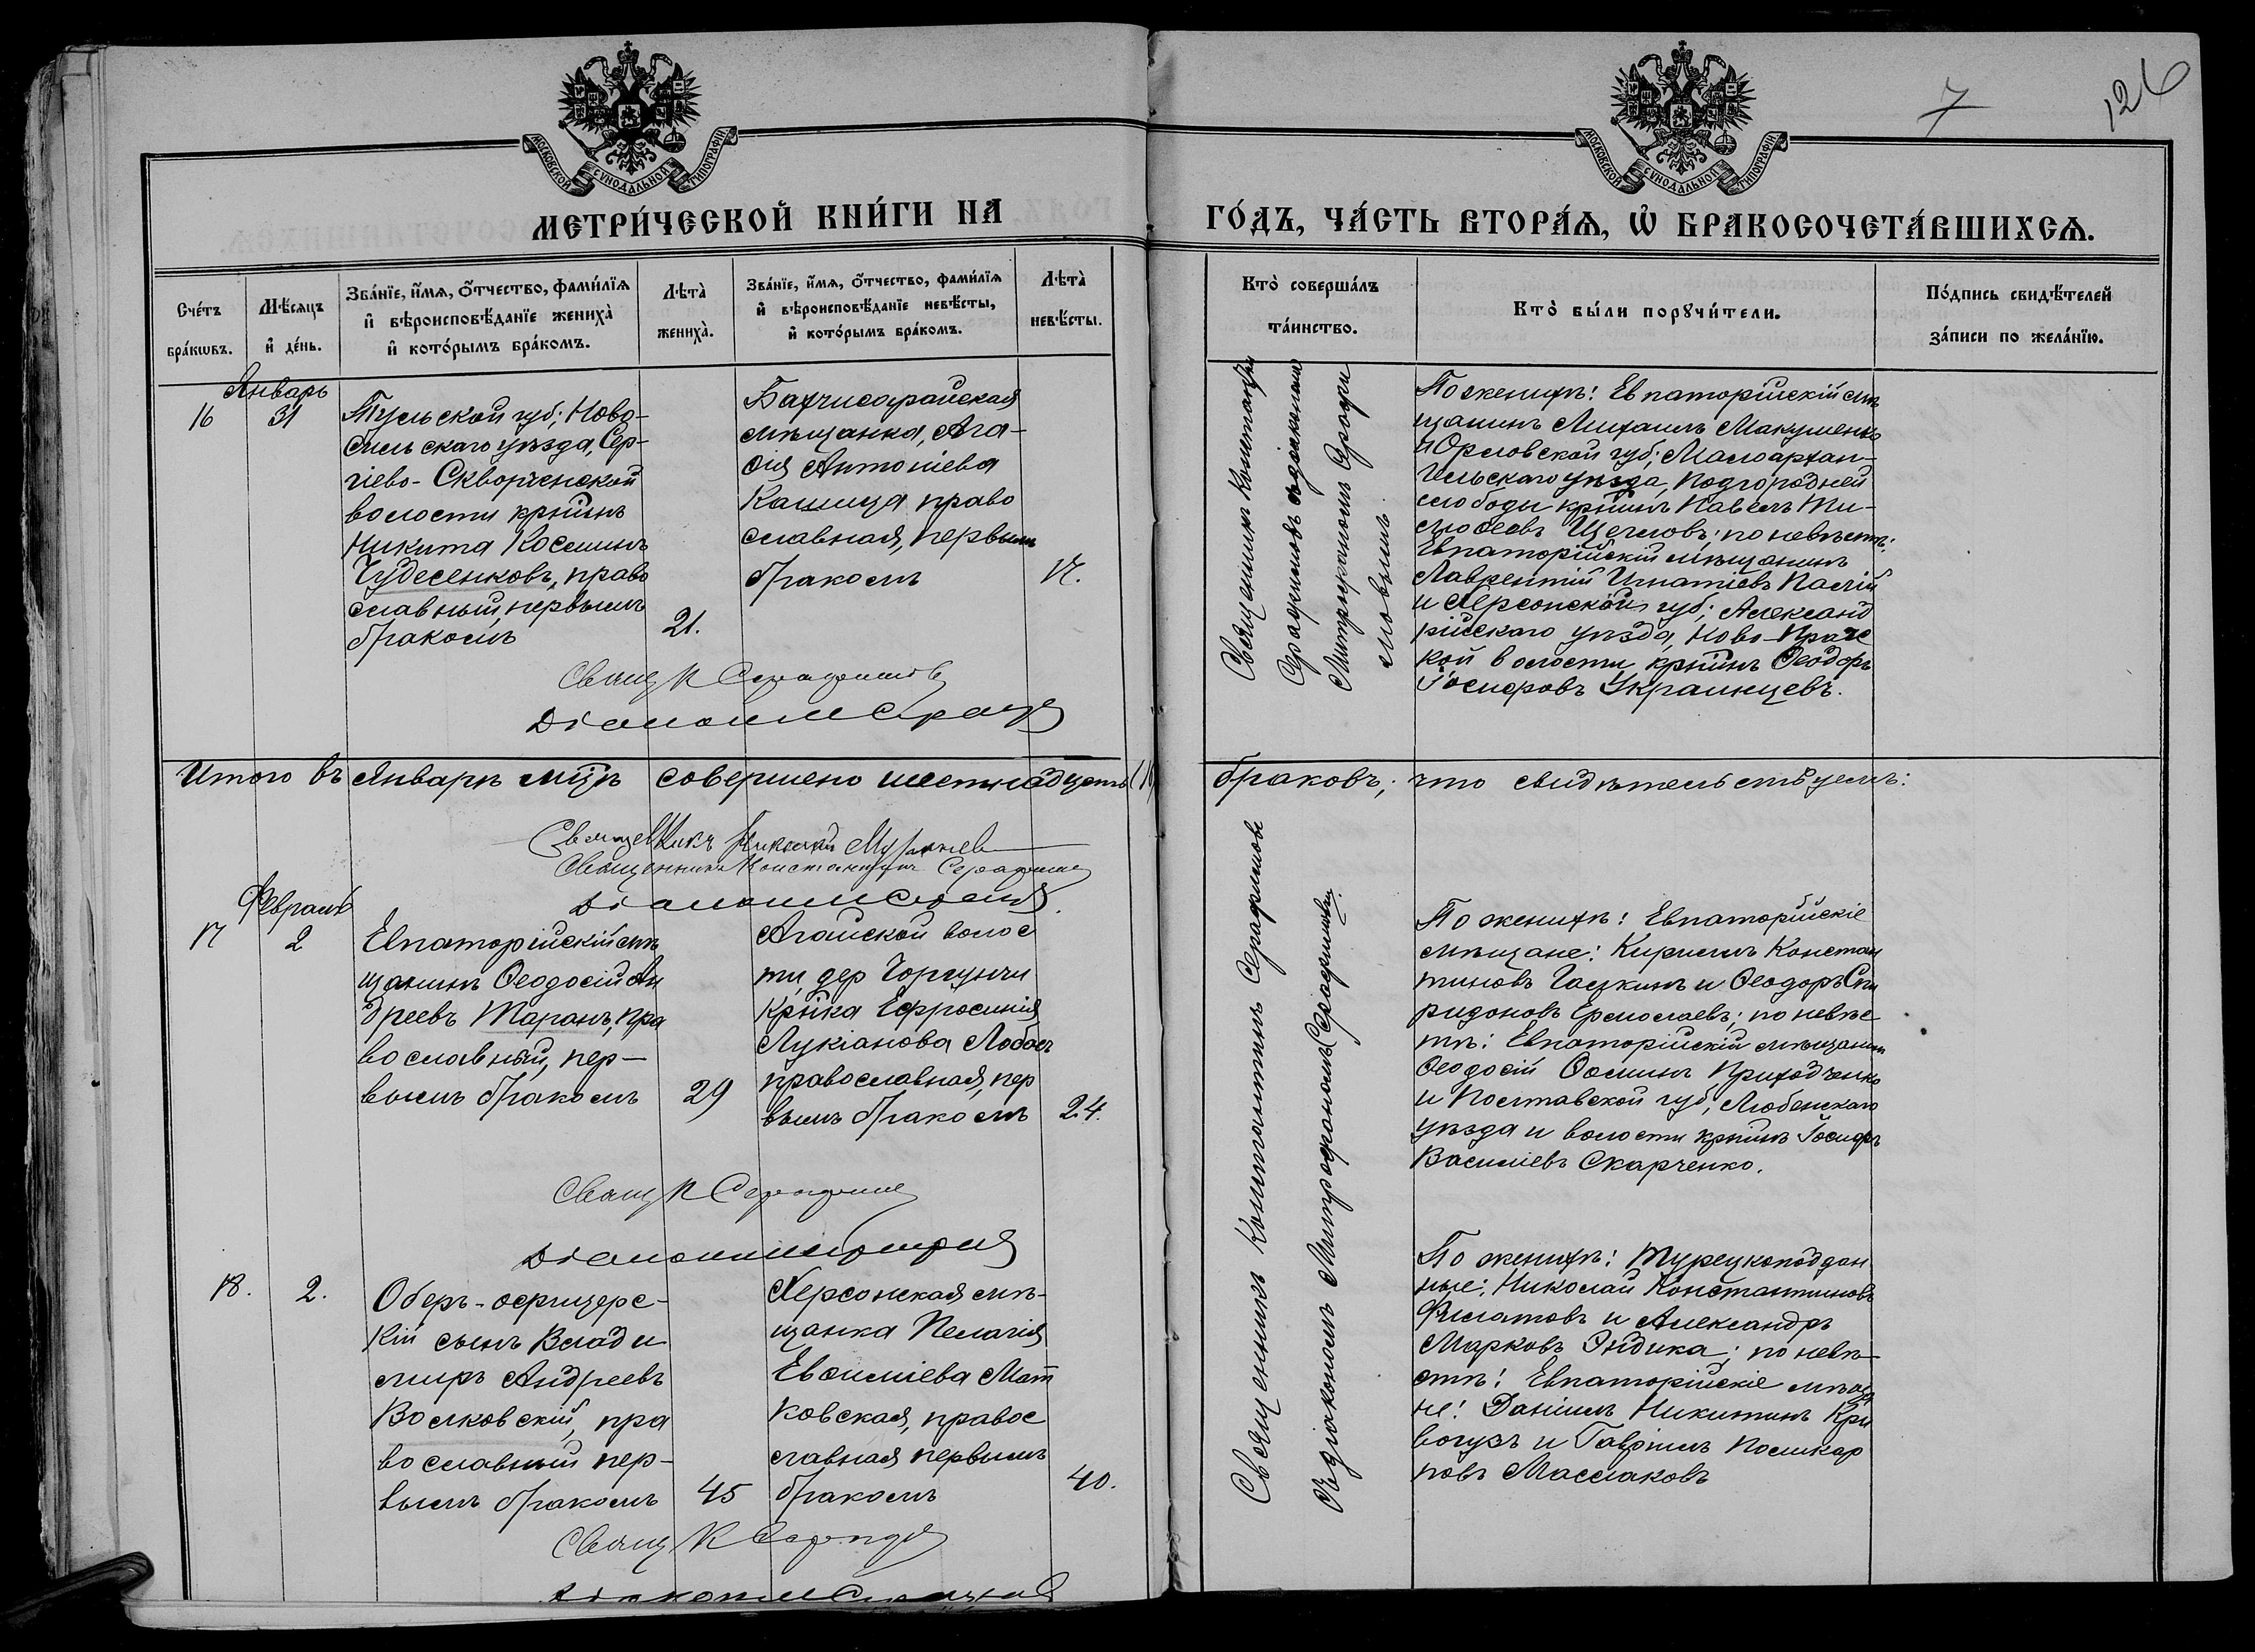 7
126
МОСКОВСКОЙ СѴНОДАЛЬНОЙ ТИПОГРАФІИ
МОСКОВСКОЙ СѴНОДАЛЬНОЙ ТИПОГРАФІИ
МЕТРИ́ЧЕСКОЙ КНИ́ГИ НА
ГО́ДЪ, ЧА́СТЬ ВТОРА́Ѧ, Ѡ҆ БРАКОСОЧЕТА́ВШИХСѦ.
Сче́тъ
бра́кѡвъ.
Мѣ́сяцъ
и҆ де́нь.
Зва́нїе, и҆́мѧ, о҆́тчество, фами́лїѧ
и҆ вѣроисповѣ́данїе жениха̀
и҆ кото́рымъ бра́комъ.
Лѣта̀
жениха̀.
Зва́нїе, и҆́мѧ, о҆́тчество, фами́лїѧ
и҆ вѣроисповѣ́данїе невѣ́сты,
и҆ кото́рымъ бра́комъ.
Лѣта̀
невѣ́сты.
Кто̀ соверша́лъ
та́инство.
Кто̀ бы́ли порꙋчи́тели.
По́дпись свидѣ́телей
за́писи по жела́нїю.
Январь
16
31
Тульской губ; Ново-
сильскаго уѣзда, Сер-
гіево-Скворченской
волости крнинъ
Никита Косминъ
Чудесенковъ, право
славный, первымъ
бракомъ
21.
Бахчисарайская
мѣщанка, Ага-
ѳія Антоніева
Капища право
славная, первымъ
бракомъ
17.
Священникъ Константинъ
Серафимовъ съ діакономъ
Митрофаномъ
По женихѣ: Евпаторійскій мѣ
щанинъ Михаилъ Макуменко
и Орловской губ; Малоархан-
гельскаго уѣзда, Подгородней
слободы крнинъ Павелъ Ти-
моѳеевъ Щегловъ; по невѣстѣ:
Евпаторійскій мѣщанинъ
Лаврентій Игнатіевъ Палій
и Херсонской губ; Александ
рійскаго уѣзда, Ново-Праж
кой волости крнинъ Ѳеодоръ
Іосифовъ Украинцевъ.
Свящ К Серафимовъ
Діаконъ М
Итого въ Январѣ мцѣ совершено шестнадцать (16) браковъ; что свидѣтельствуемъ:
Священникъ Николай
Священникъ Константинъ Серафимовъ
Діаконъ М
Февраль
17
2
Евпаторійскій мѣ
щанинъ Ѳеодосій Ан
дреевъ Таранъ, пра
вославный, пер-
вымъ бракомъ
29
Агайской волос
ти, дер Чоргунчи
крнка Ефросинія
Лукіанова Лобасъ
православная, пер
вымъ бракомъ
24.
Священникъ Константинъ Серафимовъ
съ діакономъ Митрофаномъ Серафимовымъ.
По женихѣ: Евпаторійскіе
мѣщане: Кириллъ Констан
тиновъ Гацкинъ и Ѳеодоръ Спи
ридоновъ Ермолаевъ; по невѣс
тѣ: Евпаторійскій мѣщанинъ
Ѳеодосій Ѳоминъ Приходченко
и Полтавской губ, Любенскаго
уѣзда и волости крнинъ Іосифъ
Василіевъ Скарченко.
Свящ К Серафимовъ
Діаконъ
18.
2.
Оберъ-офицерс-
кій сынъ Влади
миръ Андреевъ
Волковскій, пра
вославный пер-
вымъ бракомъ
45
Херсонская мѣ-
щанка Пелагія
Евѳиміева Мат
ковская, правос
славная первымъ
бракомъ
40.
По женихѣ: Турецкоподдан
ные: Николай Константиновъ
Филатовъ и Александръ
Марковъ Эндика; по невѣ-
стѣ: Евпаторійскіе мѣща
не: Даніилъ Никитинъ Кри
вогузъ и Гавріилъ Поликар
повъ Маслаковъ
Свящ К
Діаконъ М